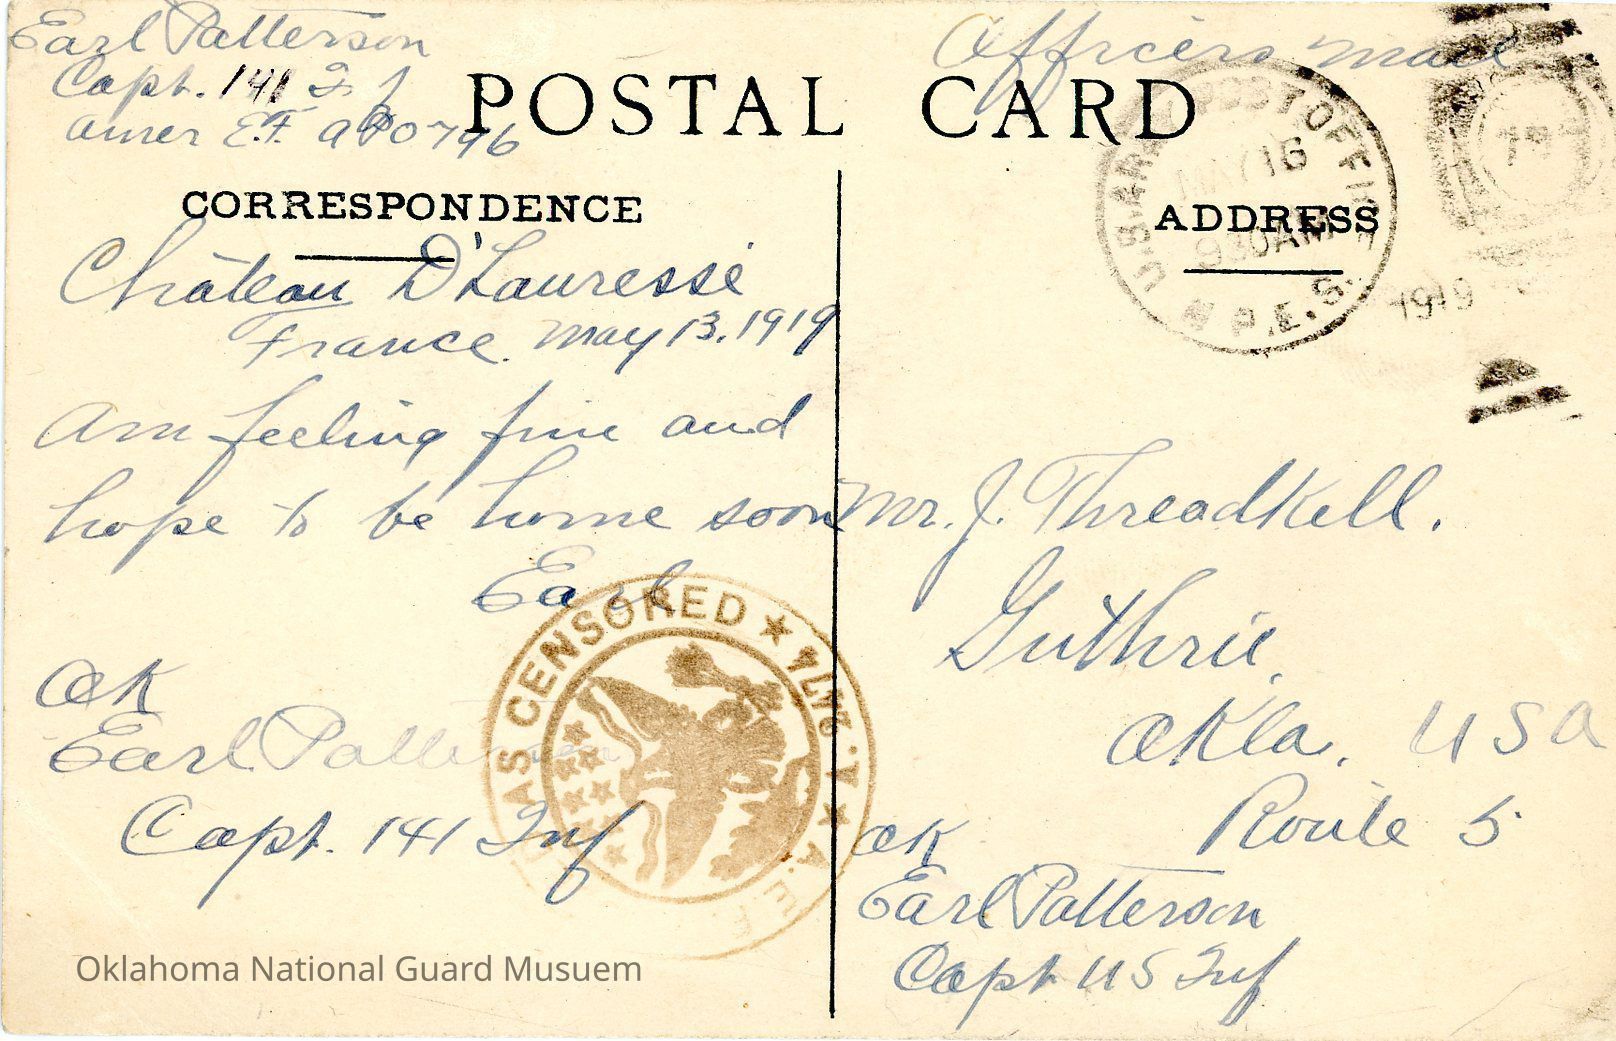 Earl Patterson
Capt. 141 Inf
Amer E.F. APO 796
Officers mail
POSTAL CARD
U.S. ARMY POST OFFICE
MAY 16
930AM
M.P.E.S.
1919
CORRESPONDENCE
ADDRESS
Château D'Lauressé
France. May 13, 1919
Am feeling fine and
hope to be home soon
Earl
OK
Earl Patterson
Capt. 141 Inf
Mr. J. Threadkell.
Guthrie,
Okla. USA
Route 5
OK
Earl Patterson
Capt US Inf
AS CENSORED
A.E.F.
Oklahoma National Guard Musuem